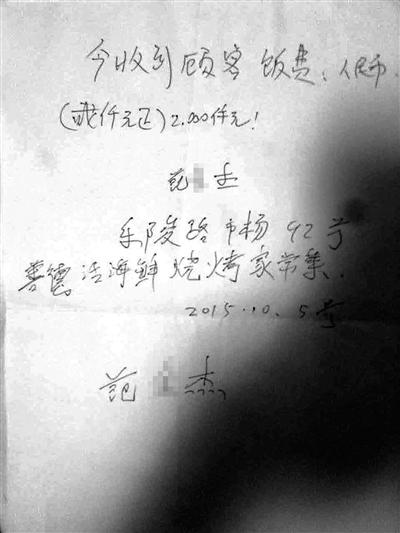 今收到顾客饭费:人民币
(贰仟元正)2.000仟元!
范
乐陵路市场92号
善德活海鲜烧烤家常菜.
2015.10.5号
范 杰